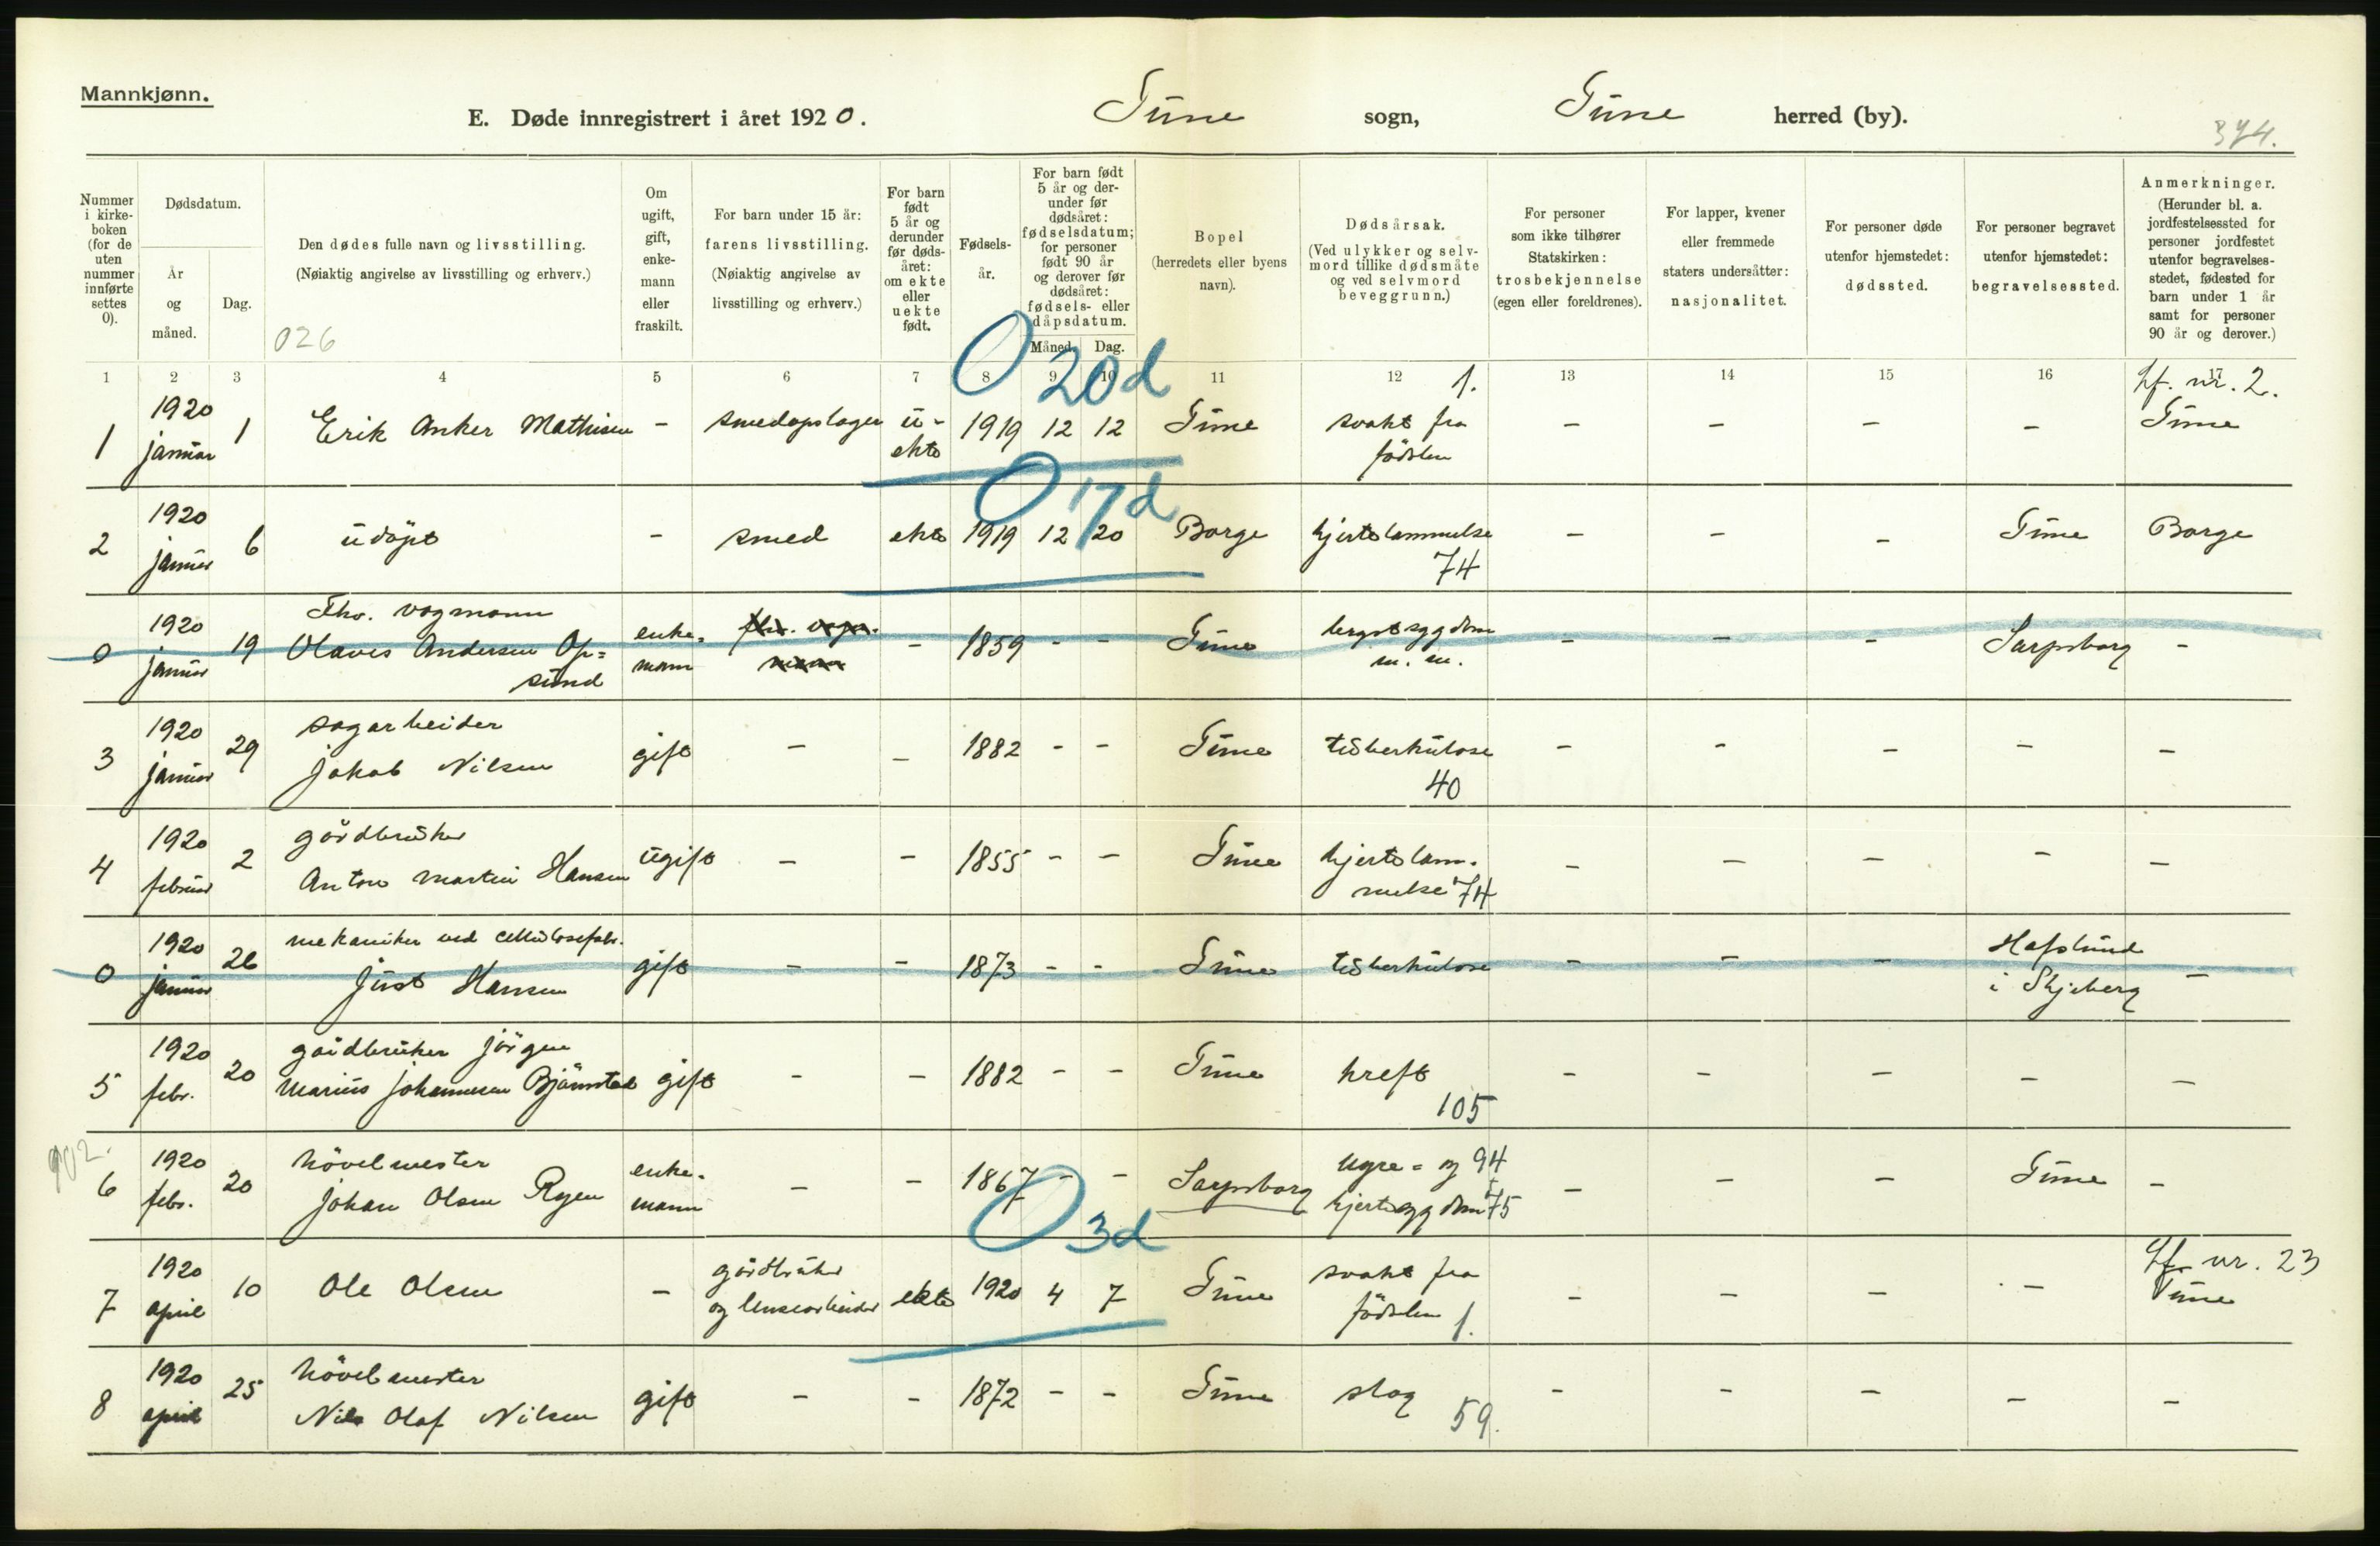 Mannkjønn.
E. Døde innregistrert i året 1920. Tune sogn, Tune herred (by).
374.
Nummer i kirke-boken (for de uten nummer innførte settes 0).
Dødsdatum.
År og måned.
Dag.
Den dødes fulle navn og livsstilling.
(Nøiaktig angivelse av livsstilling og erhverv.)
026
Om ugift, gift, enke-mann eller fraskilt.
For barn under 15 år: farens livsstilling.
(Nøiaktig angivelse av livsstilling og erhverv.)
For barn født 5 år og derunder før døds-året: om ekte eller uekte født.
Fødsels-år.
For barn født 5 år og der-under før dødsåret: fødselsdatum; for personer født 90 år og derover før dødsåret: fødsels- eller dåpsdatum.
Måned. Dag.
Bopel
(herredets eller byens navn).
Dødsårsak.
(Ved ulykker og selv-mord tillike dødsmåte og ved selvmord beveggrunn.)
For personer som ikke tilhører Statskirken: trosbekjennelse (egen eller foreldrenes).
For lapper, kvener eller fremmede staters undersåtter: nasjonalitet.
For personer døde utenfor hjemstedet: dødssted.
For personer begravet utenfor hjemstedet: begravelsessted.
Anmerkninger.
(Herunder bl. a. jordfestelsessted for personer jordfestet utenfor begravelses-stedet, fødested for barn under 1 år samt for personer 90 år og derover.)
1 2 3 4 5 6 7 8 9 10 11 12 13 14 15 16 17
0 20d 1. lf. nr. 2.
1 1920 januar 1 Erik Anker Mathisen - smedopslager u-ekte 1919 12 12 Tune svakt fra födslen - - - - Tune
0 17d
2 1920 januar 6 udöpt - smed ekte 1919 12 20 Borge hjertelammelse 74 - - - Tune Borge
0 1920 januar 19 Fhv. vogmann Olaves Andersen Op=sund enke=mann fhv. vogn.mann - 1859 - - Tune m. m. - - - Sarpsborg -
3 1920 januar 29 sagarbeider Jakob Nilsen gift - - 1882 - - Tune tuberkulose 40 - - - - -
4 1920 februar 2 gårdbruker Anton Martin Hansen ugift - - 1855 - - Tune hjertelam-melse 74 - - - - -
0 1920 januar 26 mekaniker ved cellulosefabr. Just Hansen gift - - 1873 - - Tune tuberkulose - - - Hafslund i Skjeberg -
5 1920 febr. 20 gårdbruker Jörgen Marius Johannesen Bjørnstad gift - - 1882 - - Tune kreft 105 - - - - -
902.
6 1920 febr. 20 hövelmester Johan Olsen Ryen enke-mann - - 1867 - - Sarpsborg nyre- og 94 hjertesygdom 75 - - - Tune -
0 3d
7 1920 april 10 Ole Olsen - gårdbruker og lensearbeider ekte 1920 4 7 Tune svakt fra födslen 1. - - - - lf. nr. 23 Tune
8 1920 april 25 hövelmester Nils Olaf Nilsen gift - - 1872 - - Tune slag 59. - - - - -